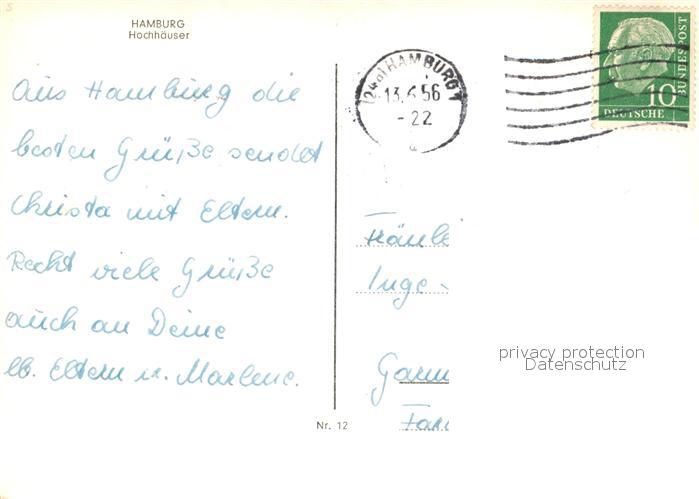 HAMBURG
Hochhäuser
Aus Hamburg die
besten Grüße sendet
Christa mit Eltern.
Recht viele Grüße
auch an Deine
lb. Eltern u. Marlene.
(24a) HAMBURG 1
13.6.56
-22
a
10
DEUTSCHE
BUNDESPOST
Fräule
Inge
Garm
privacy protection
Datenschutz
Nr. 12